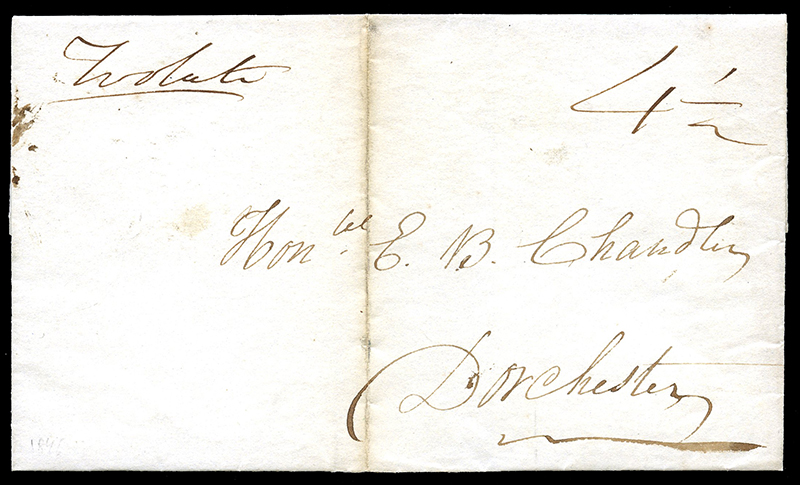 Too late
4 1/2
Hon^ble. E. B. Chandler
Dorchester